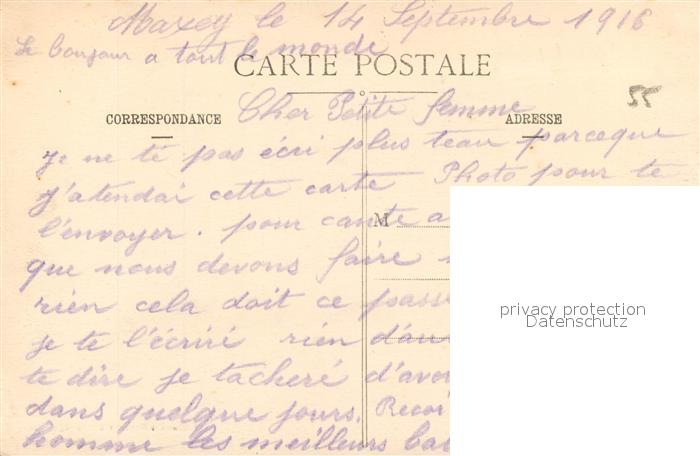 Maxey le 14 Septembre 1916
Le bonjour a tout le monde
CARTE POSTALE
55
CORRESPONDANCE
ADRESSE
Cher Petite femme
Je ne té pas écri plus teau parceque
j'atendai cette carte Photo pour te
l'envoyer. pour cante a
M
que nous devons faire
rien cela doit ce passé
je te l'écriré rien d'au
te dire je tacheré d'avoi
dans quelque jours. Recoi
homme les meilleurs bai
privacy protection
Datenschutz